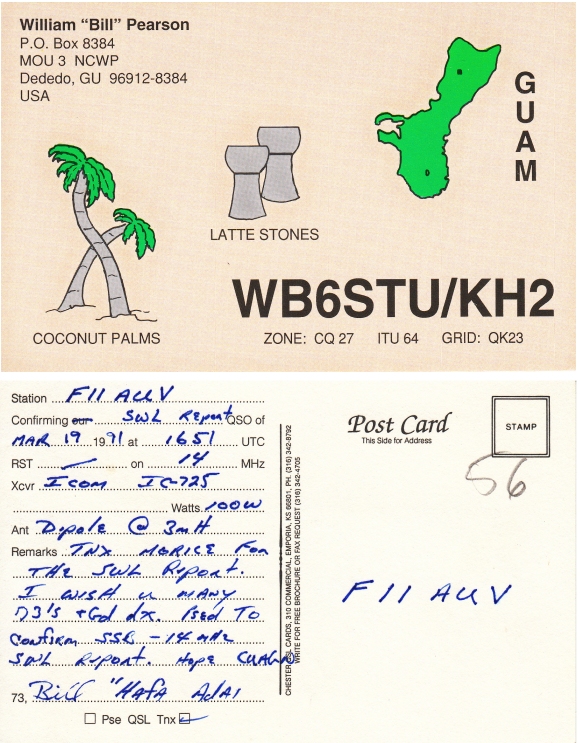 William “Bill” Pearson
P.O. Box 8384
MOU 3 NCWP
Dededo, GU 96912-8384
USA
GUAM
LATTE STONES
WB6STU/KH2
COCONUT PALMS
ZONE: CQ 27 ITU 64 GRID: QK23
Station F11 AUV
Confirming our SWL Report QSO of
MAR 19 1991 at 1651 UTC
RST on 14 MHz
Xcvr ICOM IC-725
Watts 100W
Ant Dipole @ 3mH
Remarks TNX MORICE FOR
THE SWL REPORT.
I WISH U MANY
73's + Gd dx. Psed TO
Confirm SSB - 14 mHz
SWL Report. Hope CUAGN
73, Bill "Hafa Adai
Pse QSL Tnx
CHESTER QSL CARDS, 310 COMMERCIAL, EMPORIA, KS 66801, PH. (316) 342-8792
WRITE FOR FREE BROCHURE OR FAX REQUEST (316) 342-4705
Post Card
This Side for Address
STAMP
56
F11 AUV